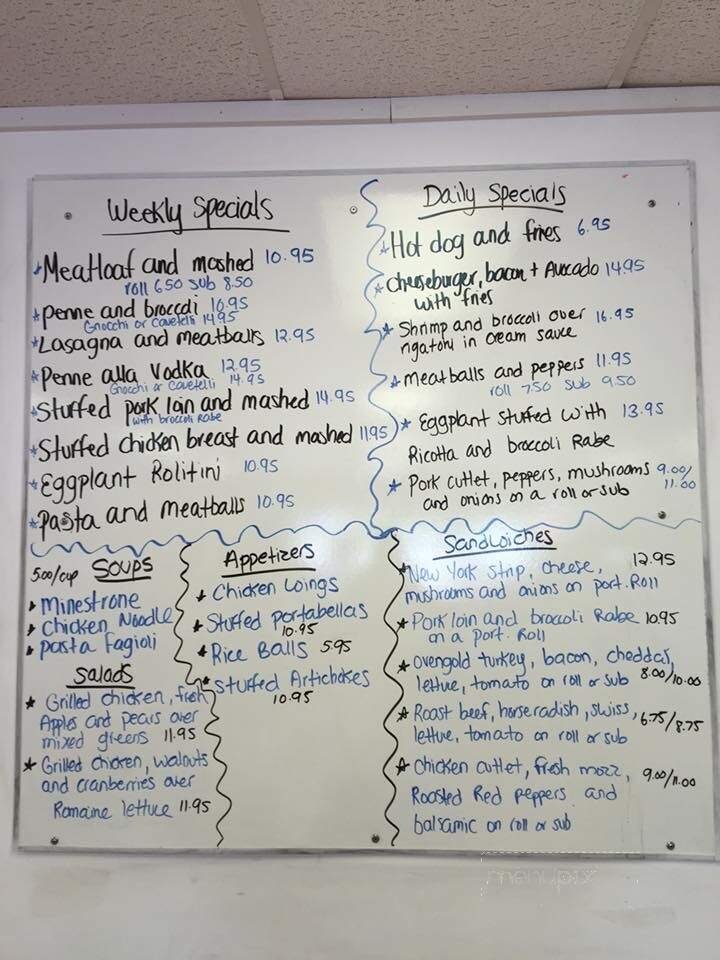 Weekly Specials
Meatloaf and mashed 10.95
roll 6.50 sub 8.50
Penne and broccoli 10.95
Gnocchi or Cavetelli 14.95
Lasagna and meatballs 12.95
Penne alla Vodka 12.95
Gnocchi or Cavetelli 14.95
Stuffed pork loin and mashed 14.95
with broccoli Rabe
Stuffed chicken breast and mashed 11.95
Eggplant Rolitini 10.95
Pasta and meatballs 10.95
Daily Specials
Hot dog and fries 6.95
Cheeseburger, bacon + Avocado 14.95
with fries
Shrimp and broccoli over 16.95
rigatoni in cream sauce
Meatballs and peppers 11.95
roll 7.50 sub 9.50
Eggplant stuffed with 13.95
Ricotta and broccoli Rabe
Pork cutlet, peppers, mushrooms 9.00/
and onions on a roll or sub 11.00
5.00/cup Soups
Minestrone
Chicken Noodle
Pasta Fagioli
Salads
Grilled chicken, fresh
Apples and pears over
mixed greens 11.95
Grilled chicken, walnuts
and cranberries over
Romaine lettuce 11.95
Appetizers
Chicken Wings
Stuffed Portabellas
10.95
Rice Balls 5.95
Stuffed Artichokes
10.95
Sandwiches
New York Strip, cheese, 12.95
mushrooms and onions on port. Roll
Pork loin and broccoli Rabe 10.95
on a port. Roll
Ovengold turkey, bacon, cheddar,
lettuce, tomato on roll or sub 8.00/10.00
Roast beef, horseradish, swiss, 6.75/8.75
lettuce, tomato on roll or sub
Chicken cutlet, fresh mozz, 9.00/11.00
Roasted Red peppers and
balsamic on roll or sub